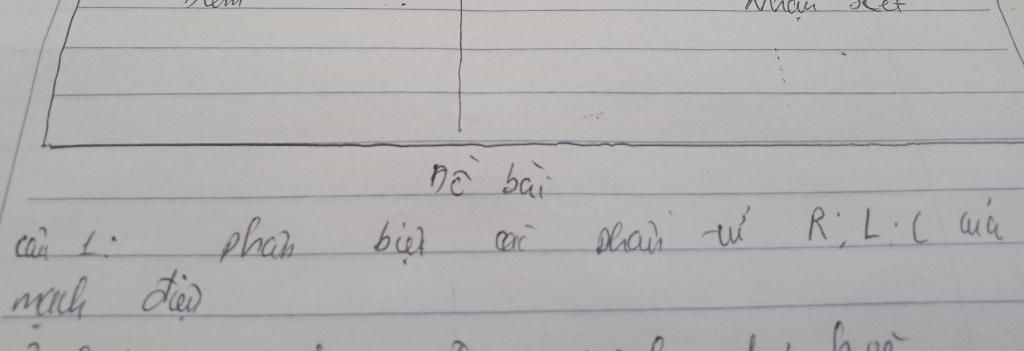 Nhận xét
Đề bài
câu 1: phân biệt các phần tử R; L; C của
mạch điện